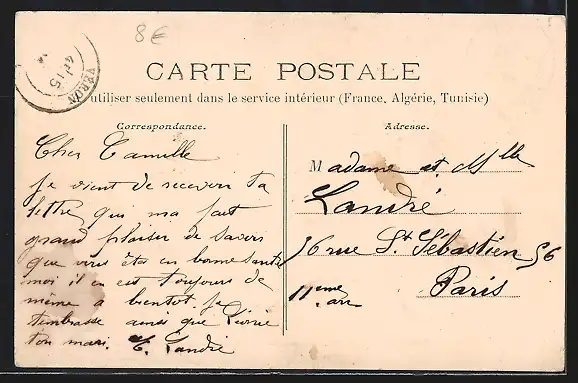 8€
VÉRON
CARTE POSTALE
utiliser seulement dans le service intérieur (France, Algérie, Tunisie)
Correspondance.
Cher Camille
Je vient de recevoir ta
lettre qui ma fait
grand plaisir de savoir
que vous êtes en bonne santé
moi il en est toujours de
même a bientot je
t'embrasse ainsi que
ton mari. Landré
Adresse.
Madame et Mlle
Landré
56 rue St Sébastien 56
11eme arr
Paris